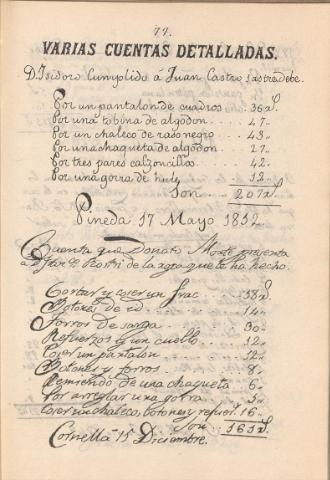 77.
VARIAS CUENTAS DETALLADAS.
D. Isidoro Cumplido á Juan Castro, sastre debe.
Por un pantalon de cuadros . . 36 rl.
Por una tobina de algodon . . . 47 „
Por un chaleco de raso negro . . 43 „
Por una chaqueta de algodon . . 27 „
Por tres pares calzoncillos . . . 42 „
Por una gorra de . . 12 „
Son . . 207 rl.
Pineda 17 Mayo 1832
Cuenta que Donato presenta
á de la que le ha hecho.
Cortar y coser un frac . . 38 rl.
Botones de id . . . 14 „
Forros de sarga . . . 30 „
Refuerzos y un cuello . . 12 „
Coser un pantalon . . . 32 „
Botones y forros . . . 8 „
Remiendo de una chaqueta . . 6 „
Por arreglar una gorra . . 5 „
Coser un chaleco, botones y refuer. 16 „
Son . . 161 rl.
Cornellá 15 Diciembre.